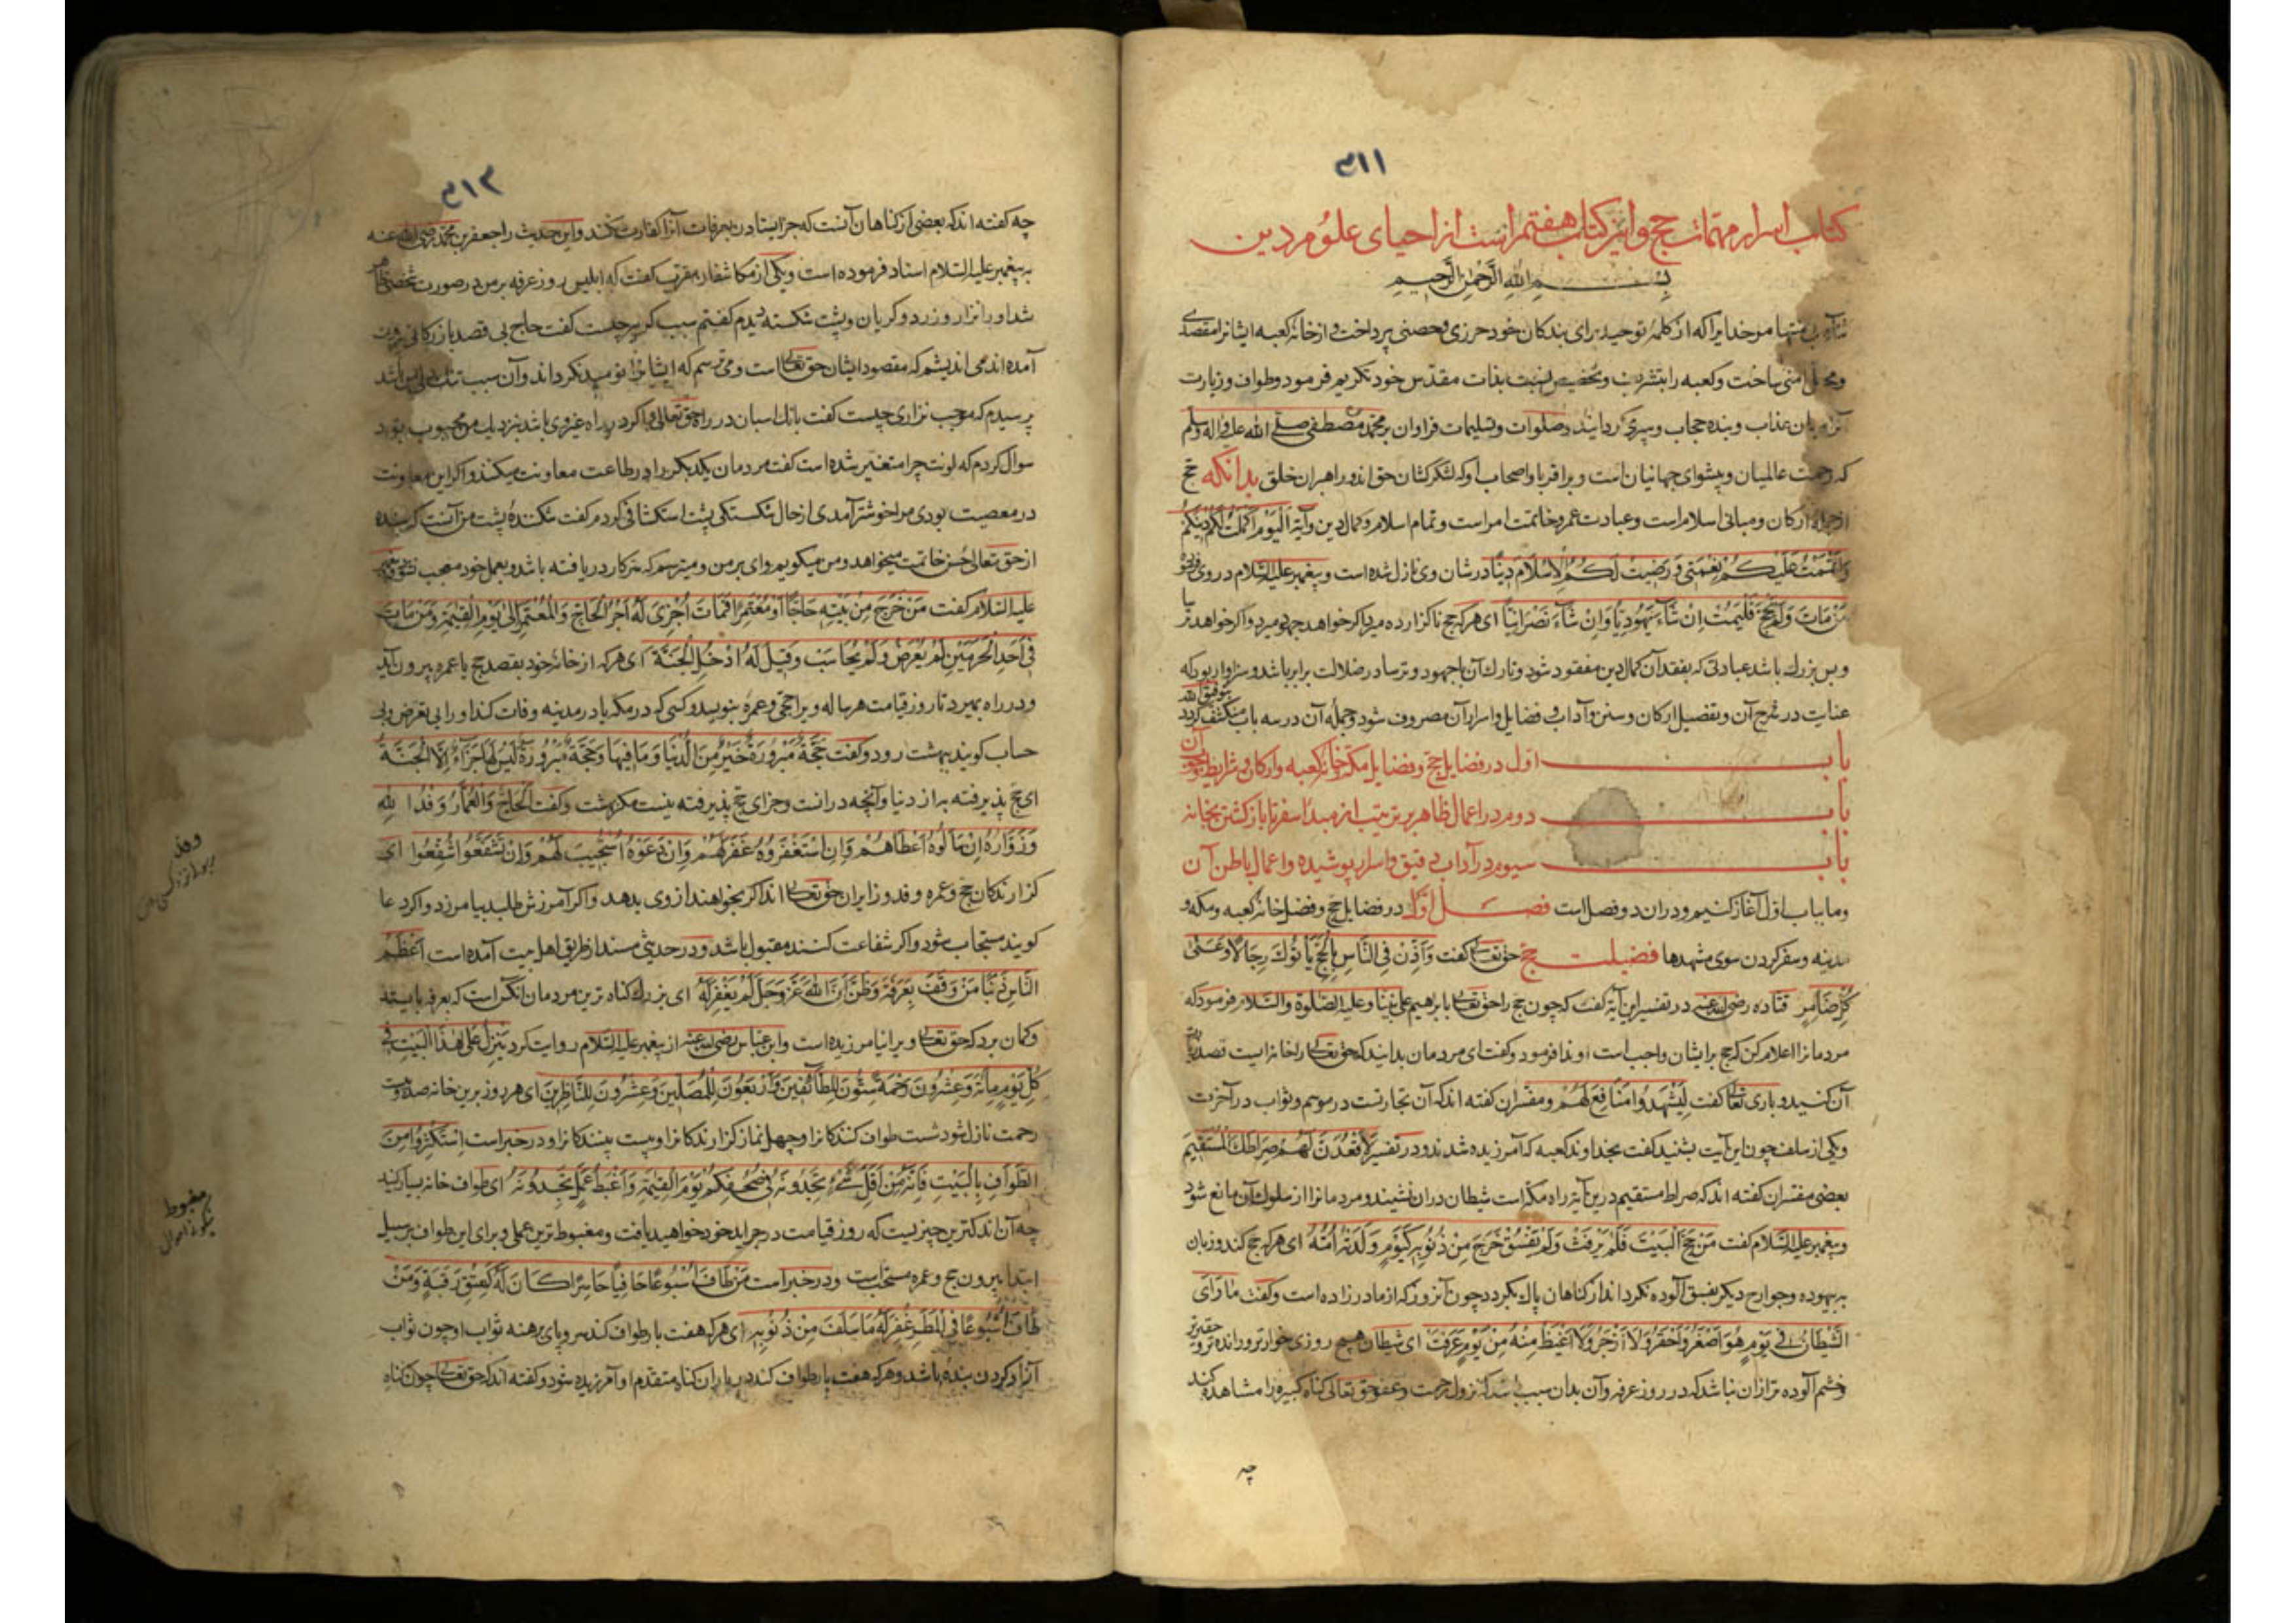 ۳۱۱
کتاب اسرار مهمات حج و این کتاب هفتم است از احیای علوم دین
بسم الله الرحمن الرحیم
منتها مر خدایرا که از کلمه توحید برای بندکان خود حرزی و حصنی پرداخت و از خانه کعبه ایشانرا مقصدی
و امنی ساخت و کعبه را بتشریف و تخصیص نسبت بذات مقدس خود تکریم فرمود و طواف و زیارت
آنرا میان عذاب و بنده حجاب و سپری کردانید و صلوات و تسلیمات فراوان بر محمد مصطفی صلی الله علیه و اله وسلم
که رحمت عالمیان و پیشوای جهانیان است و بر اقربا و اصحاب او که لشکرکشان حق اند و راهبران خلق بدانکه حج
از جمله ارکان و مبانی اسلام است و عبادت عمر و خاتمت امر است و تمام اسلام و کمال دین و آیة اَلْیَوْمَ اَکْمَلْتُ لَکُمْ دِینَکُمْ
وَاَتْمَمْتُ عَلَیْکُمْ نِعْمَتِی وَ رَضِیتُ لَکُمُ الْاِسْلَامَ دِیناً در شان وی نازل شده است و پیغمبر علیه السلام در وی فرموده
مَنْ مَاتَ وَلَمْ یَحُجَّ فَلْیَمُتْ اِنْ شَآءَ یَهُودِیّاً وَاِنْ شَآءَ نَصْرَانِیّاً ای هر که حج ناکزارده میرد اکر خواهد جهود میرد و اکر خواهد ترسا
و بس بزرك باشد عبادتی که بفقد آن کمال دین مفقود شود و تارك آن با جهود و ترسا در ضلالت برابر باشد و سزاوار بود که
عنایت در شرح آن و تفصیل ارکان و سنن و آداب و فضایل و اسرار آن مصروف شود و جمله آن در سه باب منکشف کردد بتوفیق الله
باب اول در فضایل حج و فضایل مکه و خانه کعبه و ارکان و شرایط وجوب آن
باب دوم در اعمال ظاهر بر ترتیب از مبدا سفر تا باز کشتن بخانه
باب سیوم در آداب دقیق و اسرار پوشیده و اعمال باطن آن
و ما بباب اول آغاز کنیم و در ان دو فصل است فصل اول در فضایل حج و فضل خانه کعبه و مکه و
مدینه و سفر کردن سوی مشهدها فضیلت حج حق تعالی کفت وَاَذِّنْ فِی النَّاسِ بِالْحَجِّ یَاْتُوكَ رِجَالًا وَعَلَیٰ
کُلِّ ضَامِرٍ قتاده رضی الله عنه در تفسیر این آیة کفت که چون حج را حق تعالی بابراهیم علی نبینا و علیه الصلوة والسلام فرمود که
مردمانرا اعلام کن که حج بر ایشان واجب است او ندا فرمود و کفت ای مردمان بدانید که حق تعالی را خانه ایست قصد زیارت
آن کنید و باری تعالی کفت لِیَشْهَدُوا مَنَافِعَ لَهُمْ و مفسران کفته اند که آن تجارتست در موسم و ثواب در آخرت
و یکی از سلف چون این آیت بشنید کفت بخداوند کعبه که آمرزیده شدند و در تفسیر لَاَقْعُدَنَّ لَهُمْ صِرَاطَكَ الْمُسْتَقِیمَ
بعضی مفسران کفته اند که صراط مستقیم درین آیة راه مکه است شیطان در ان نشیند و مردمانرا از سلوك آن مانع شود
و پیغمبر علیه السلام کفت مَنْ حَجَّ الْبَیْتَ فَلَمْ یَرْفَثْ وَلَمْ یَفْسُقْ خَرَجَ مِنْ ذُنُوبِهِ کَیَوْمٍ وَلَدَتْهُ اُمُّهُ ای هر که حج کند و زبان
به بیهوده و جوارح دیکر بفسق آلوده نکرداند از کناهان پاك بکردد چون آنروز که از مادر زاده است و کفت مَا رَاَی
الشَّیْطَانُ فِی یَوْمٍ هُوَ اَصْغَرُ وَ اَحْقَرُ وَلَا اَدْحَرُ وَلَا اَغْیَظُ مِنْهُ مِنْ یَوْمِ عَرَفَةَ ای شیطان هیچ روزی خوارتر و رانده تر و حقیرتر و
خشم آلوده تر از ان نباشد که در روز عرفه و آن بدان سبب باشد که نزول رحمت و عفو حق تعالی کناه کبیره را مشاهده کند
چه
۳۱۲
چه کفته اند که بعضی از کناهان آنست که جز ایستادن بعرفات آنرا کفارت نکند و این حدیث را جعفر بن محمد رضی الله عنه
به پیغمبر علیه السلام اسناد فرموده است و یکی از مکاشفان مقرب کفت که ابلیس روز عرفه بر من در صورت شخصی ظاهر
شد او را نزار و زرد و کریان و پشت شکسته دیدم کفتم سبب کریه چیست کفت حاج بی قصد بازرکانی بیرون
آمده اند می اندیشم که مقصود ایشان حق تعالی است و می ترسم که ایشانرا نومید نکرداند و آن سبب
پرسیدم که موجب نزاری چیست کفت بانك اسبان در راه حق تعالی و اکر در راه غیر وی باشد بنزدیك من محبوب بود
سوال کردم که لونت چرا متغیر شده است کفت مردمان یکدیکر را در طاعت معاونت میکنند و اکر این معاونت
در معصیت بودی مرا خوشتر آمدی از حال شکستکی پشت استکشافی کردم کفت شکنندهٔ پشت من آنست که بنده
از حق تعالی حُسن خاتمت میخواهد و من میکویم وای بر من و میترسم که سر کار دریافته باشد و بعمل خود معجب نشود و پیغمبر
علیه السلام کفت مَنْ خَرَجَ مِنْ بَیْتِهِ حَاجّاً اَوْ مُعْتَمِراً فَمَاتَ اُجْرِیَ لَهُ اَجْرُ الْحَاجِّ وَ الْمُعْتَمِرِ اِلیٰ یَوْمِ الْقِیٰمَةِ وَمَنْ مَاتَ
فِی اَحَدِ الْحَرَمَیْنِ لَمْ یُعْرَضْ وَلَمْ یُحَاسَبْ وَقِیلَ لَهُ ادْخُلِ الْجَنَّةَ ای هر که از خانه خود بقصد حج یا عمره بیرون آید
و در راه بمیرد تا روز قیامت هر ساله ویرا حجی و عمرهٔ بنویسد و کسی که در مکه یا در مدینه وفات کند او را بی تعرض و بی
حساب کویند ببهشت رو و کفت حَجَّةٌ مَبْرُورَةٌ خَیْرٌ مِنَ الدُّنْیَا وَ مَا فِیهَا وَحَجَّةٌ مَبْرُورَةٌ لَیْسَ لَهَا جَزَآءٌ اِلَّا الْجَنَّةُ
ای حج پذیرفته به از دنیا و آنچه در انست و جزای حج پذیرفته نیست مکر بهشت و کفت اَلْحَاجُّ وَالْعُمَّارُ وَفْدُ اللهِ
وَ زُوَّارُهُ اِنْ سَاَلُوهُ اَعْطَاهُمْ وَاِنِ اسْتَغْفَرُوهُ غَفَرَ لَهُمْ وَاِنْ دَعَوْهُ اسْتُجِیبَ لَهُمْ وَاِنْ تَشَفَّعُوا شُفِّعُوا ای
کزارندکان حج و عمره وفد و زایران حق تعالی اند اکر بخواهند از وی بدهد و اکر آمرزش طلبند بیامرزد و اکر دعا
کویند مستجاب شود و اکر شفاعت کنند مقبول باشد و در حدیثی مسند از طریق اهل بیت آمده است اَعْظَمُ
النَّاسِ ذَنْبًا مَنْ وَقَفَ بِعَرَفَةَ وَظَنَّ اَنَّ اللهَ عَزَّ وَجَلَّ لَمْ یَغْفِرْ لَهُ ای بزرك کناه ترین مردمان آنکس است که بعرفه بایستد
و کمان برد که حق تعالی ویرا نیامرزیده است و ابن عباس رضی الله عنه از پیغمبر علیه السلام روایت کرد یَنْزِلُ عَلیٰ هٰذَا الْبَیْتِ فِی
کُلِّ یَوْمٍ مِائَةٌ وَعِشْرُونَ رَحْمَةً سِتُّونَ لِلطَّائِفِینَ وَاَرْبَعُونَ لِلْمُصَلِّینَ وَعِشْرُونَ لِلنَّاظِرِینَ ای هر روز برین خانه صد و بیست
رحمت نازل شود شست طواف کنندکانرا و چهل نماز کزارندکانرا و بیست بینندکانرا و در خبر است اِسْتَکْثِرُوا مِنَ
الطَّوَافِ بِالْبَیْتِ فَاِنَّهُ مِنْ اَقَلِّ شَیْءٍ تَجِدُونَهُ فِی صُحُفِکُمْ یَوْمَ الْقِیٰمَةِ وَ اَغْبَطِ عَمَلٍ تَجِدُونَهُ ای طواف خانه بسیار کنید
چه آن اندکترین چیزیست که روز قیامت در جراید خود خواهید یافت و مغبوط ترین عملی و برای این طواف بر سبیل
ابتدا بیرون حج و عمره مستحب است و در خبر است مَنْ طَافَ اُسْبُوعًا حَافِیاً حَاسِراً کَانَ لَهُ کَعِتْقِ رَقَبَةٍ وَمَنْ
طَافَ اُسْبُوعًا فِی الْمَطَرِ غُفِرَ لَهُ مَا سَلَفَ مِنْ ذُنُوبِهِ ای هر که هفت بار طواف کند سر و پای برهنه ثواب او چون ثواب
آزاد کردن بندهٔ باشد و هر که هفت بار طواف کند در باران کناه متقدم او آمرزیده شود و کفته اند که حق تعالی چون کناه
وفد
مغبوط